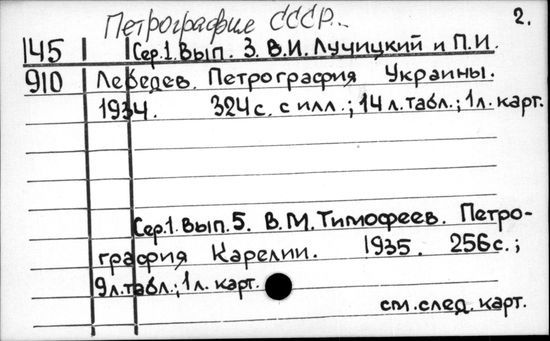 Петрография СССР...
2.
145 Сер.1. Вып. 3. В.И. Лучицкий и П.И.
910 Лебедев. Петрография Украины.
1934. 324с. с илл.; 14 л. табл.; 1 л. карт.
Сер.1. Вып. 5. В.М. Тимофеев. Петро-
графия Карелии. 1935. 256с.;
9 л. табл.; 1 л. карт.
см. след. карт.